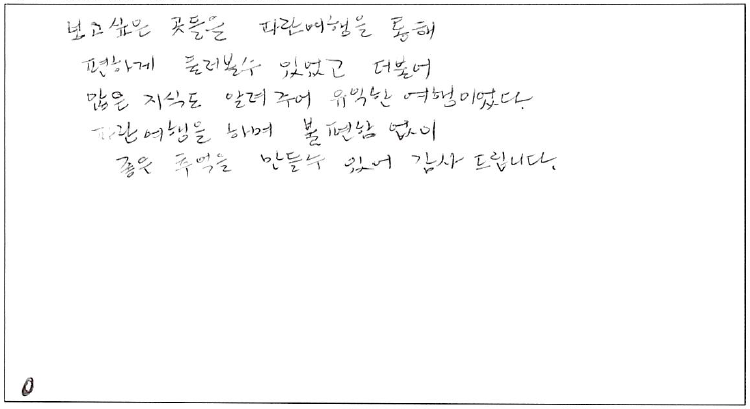 보고싶은 곳들을 파란여행을 통해
편하게 둘러볼수 있었고 더불어
많은 지식도 알려주어 유익한 여행이었다.
파란여행을 하며 불편함 없이
좋은 추억을 만들수 있어 감사드립니다.
0